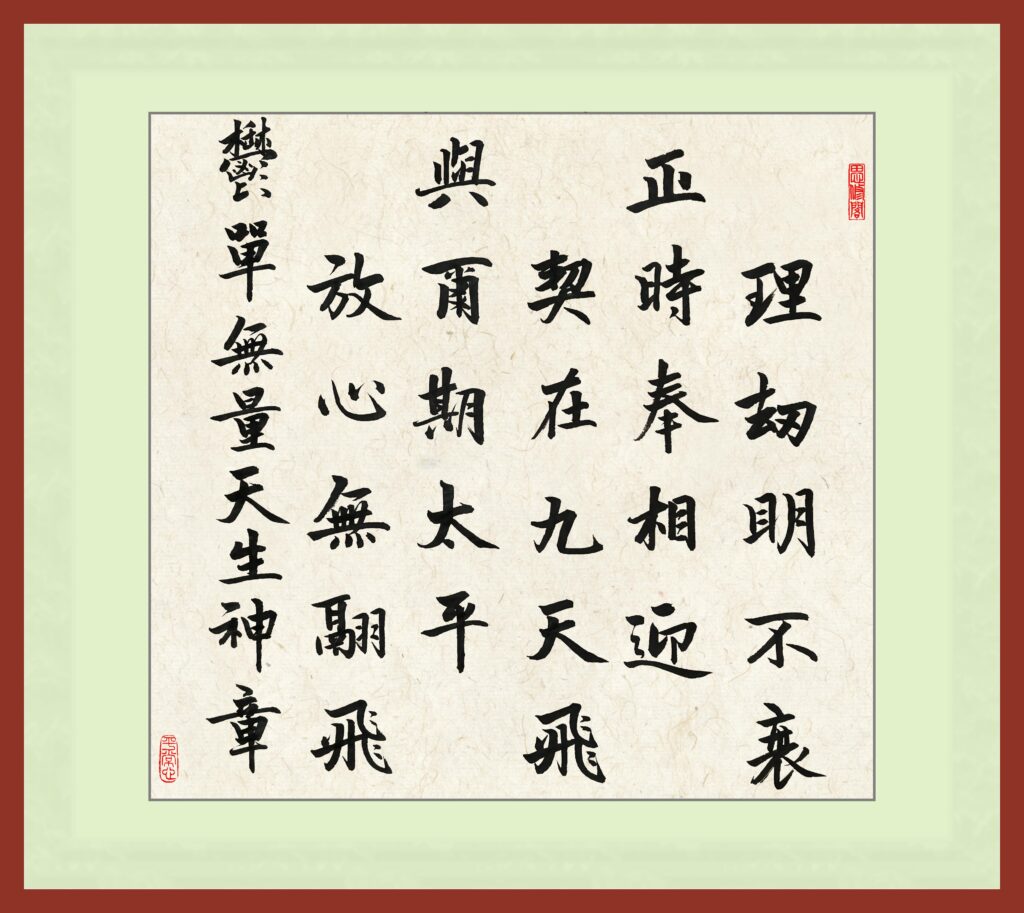 理刧明不衰
正時奉相迎
契在九天飛
與爾期太平
放心無翮飛
鬱單無量天生神章
平常心